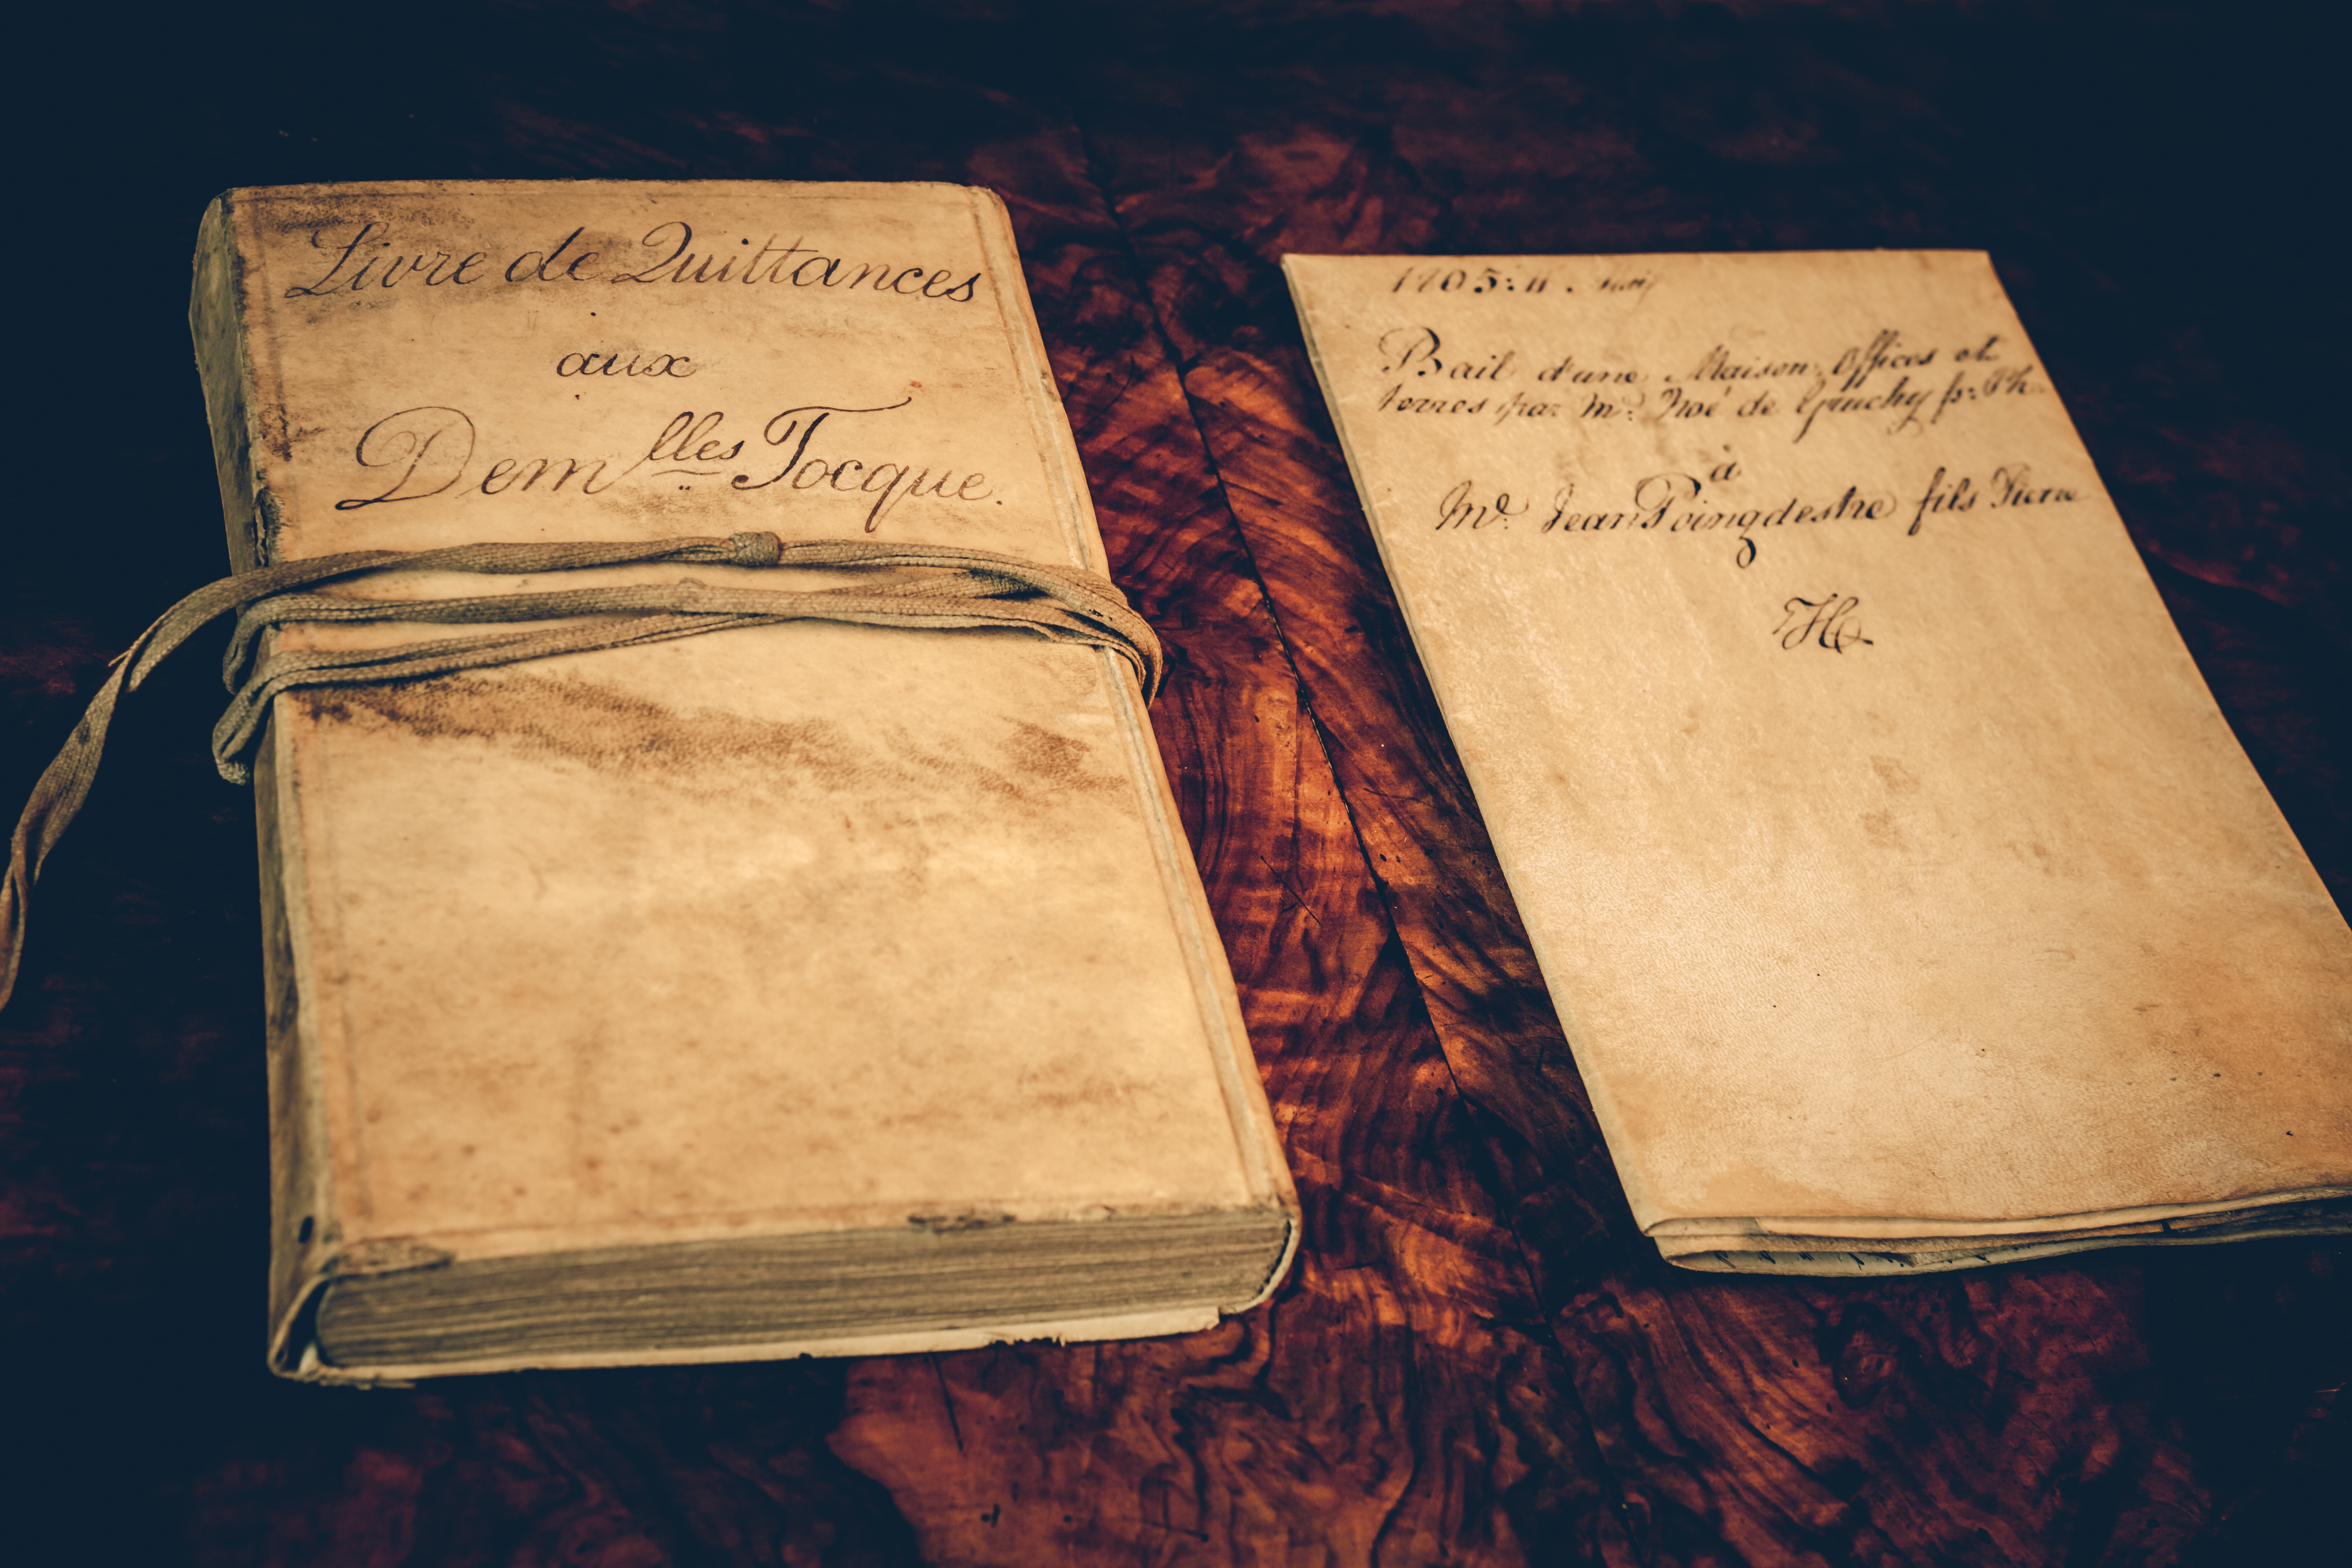 Livre de Quittances
aux
Dem^lles Tocque.
1705: 11.
Bail d'une Maison, Offices et
terres par Mr. Noé de Gruchy fs: Th:
à
Mr. Jean Poingdestre fils Pierre